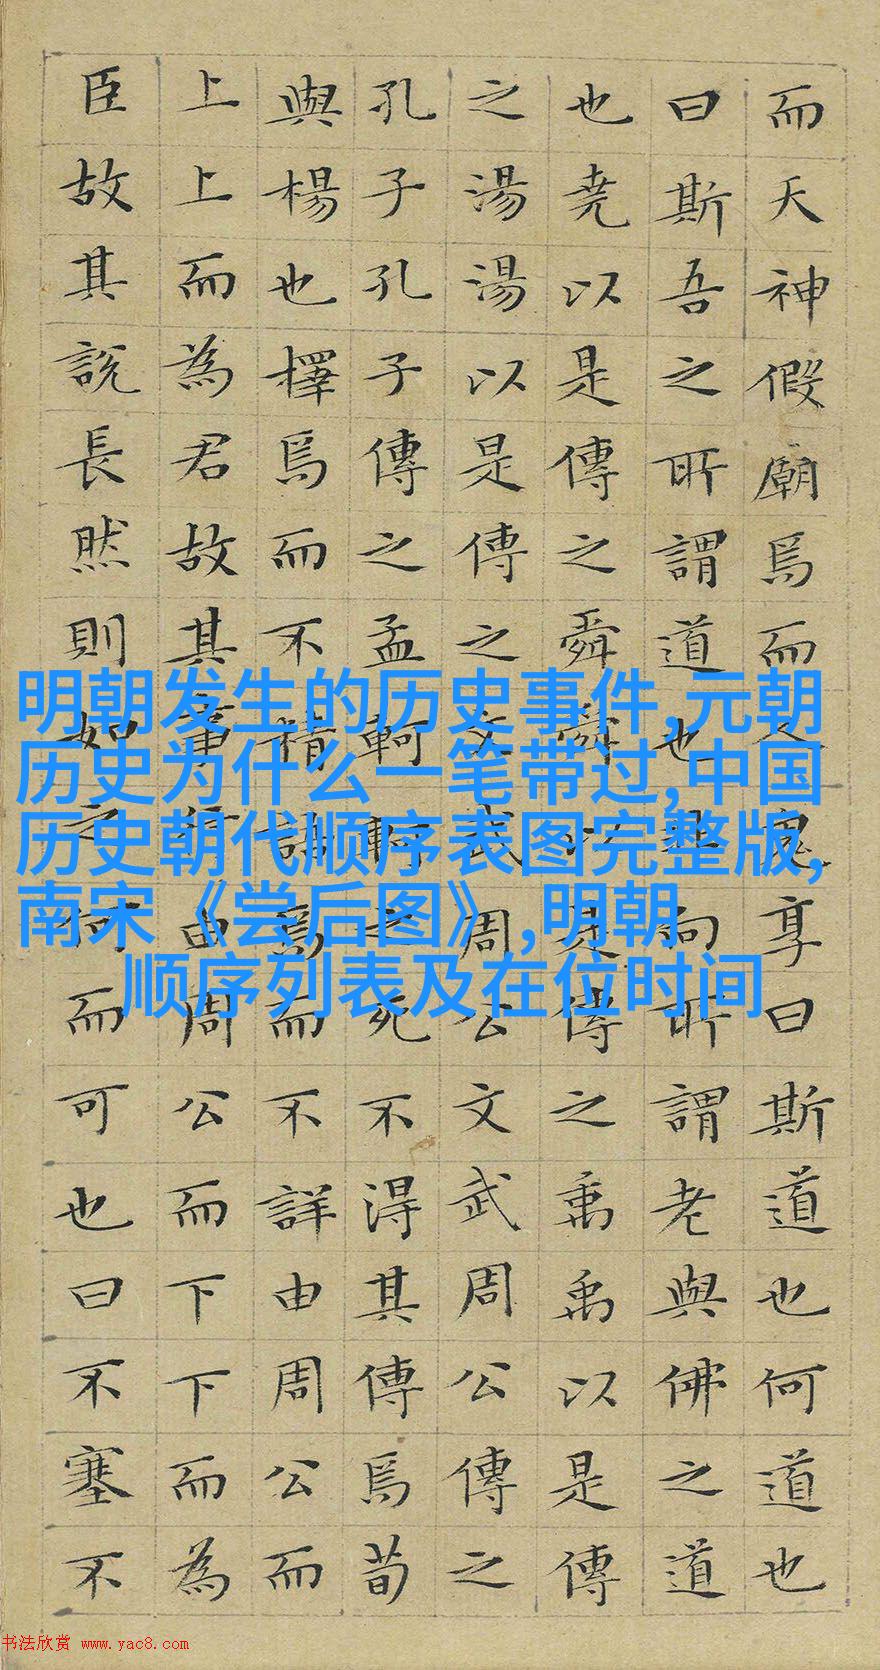 而天神假廟焉而人鬼享曰斯道也何道也
曰斯吾之所謂道也非向所謂老與佛之道
也堯以是傳之舜舜以是傳之禹禹以是傳
之湯湯以是傳之文武周公文武周公傳之
孔子孔子傳之孟軻軻之死不得其傳焉荀
與楊也擇焉而不精語焉而不詳由周公而
上上而為君故其事行由周公而下下而為
臣故其說長然則如之何而可也曰不塞不
明朝发生的历史事件,元朝
历史为什么一笔带过,中国
历史朝代顺序表图完整版,
南宋《尝后图》,明朝
顺序列表及在位时间
书法欣赏 www.yac8.com